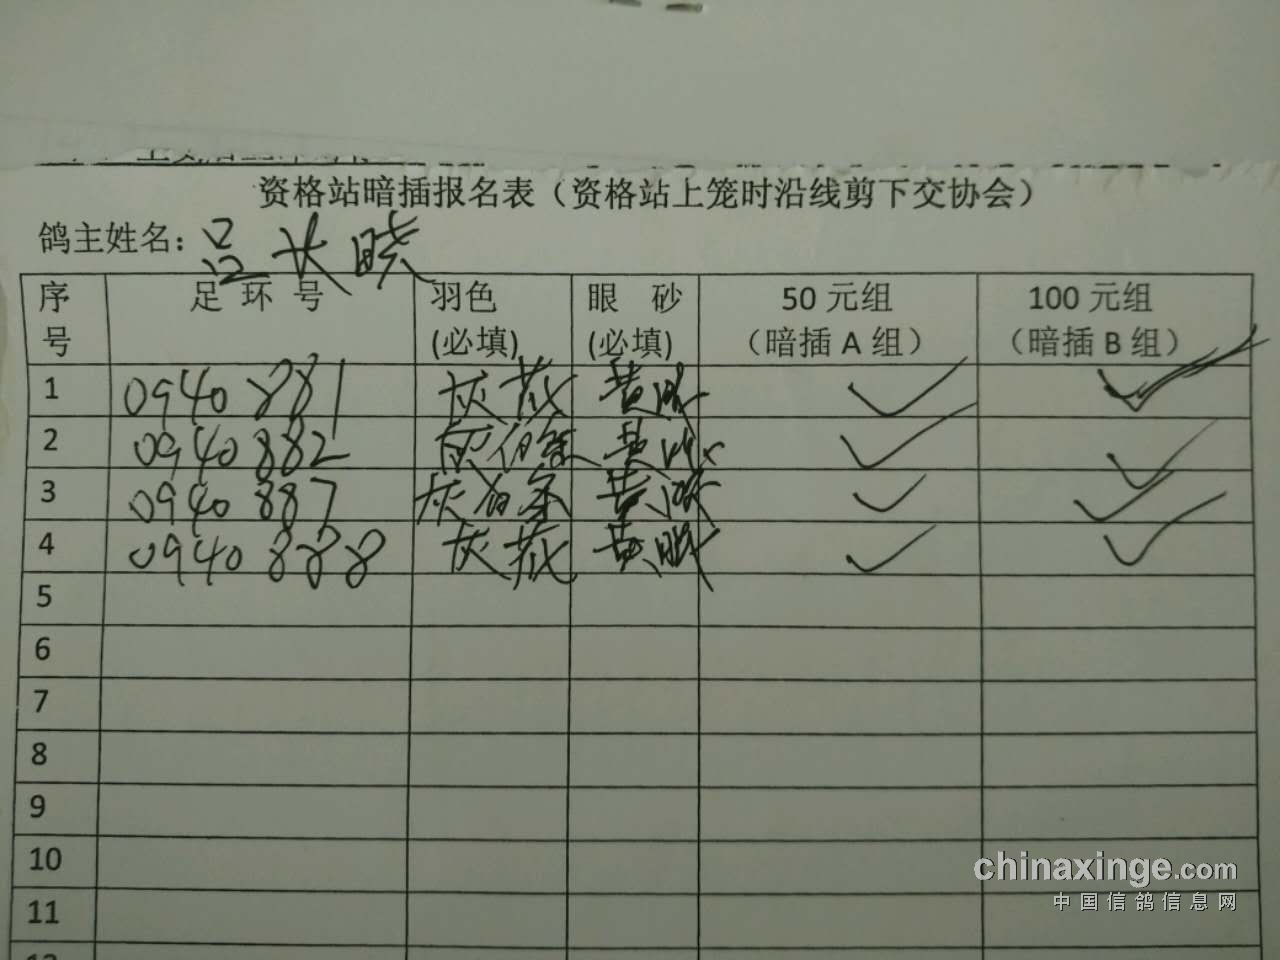 资格站暗插报名表（资格站上笼时沿线剪下交协会）
鸽主姓名：吕长晓
序号 足环号 羽色(必填) 眼砂(必填) 50元组（暗插A组） 100元组（暗插B组）
1 0940881 灰 黄眼 ✓ ✓
2 0940882 灰白条 黄眼 ✓ ✓
3 0940887 灰白条 黄眼 ✓ ✓
4 0940888 灰 黄眼 ✓ ✓
5
6
7
8
9
10
11
chinaxinge.com
中国信鸽信息网